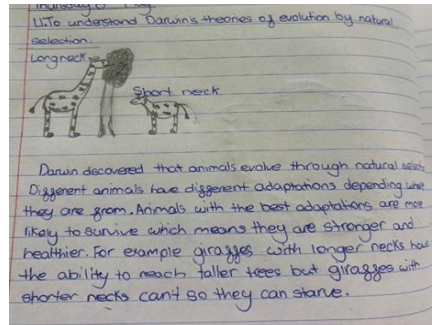 L.I. To understand Darwin's theories of evolution by natural
selection.
Long neck
Short neck
Darwin discovered that animals evolve through natural
Different animals have different adaptations depending
they are from. Animals with the best adaptations are more
likely to survive which means they are stronger and
healthier. For example giraffes with longer necks have
the ability to reach taller trees but giraffes with
shorter necks can't so they can starve.